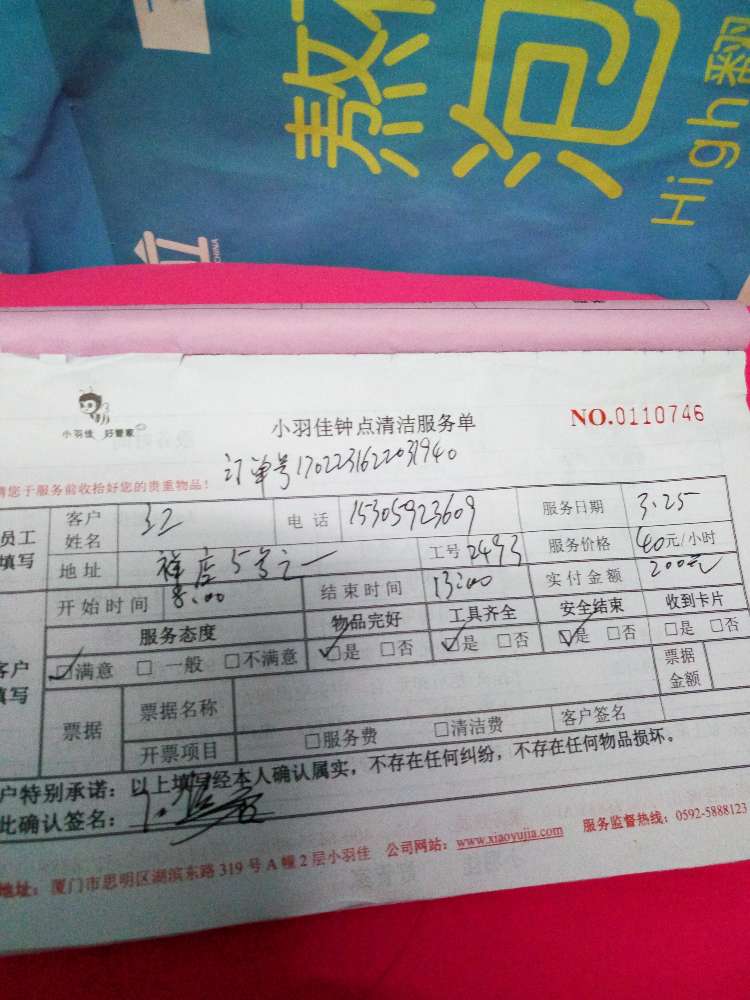 熬
泡
High翻
CHINA
小羽佳 好管家
小羽佳钟点清洁服务单
NO.0110746
订单号1702231622031940
请您于服务前收拾好您的贵重物品！
员工填写
客户姓名
电话 15305923609
服务日期 3.25
地址 祥店5号之一
工号 2493
服务价格 40元/小时
开始时间 8:00
结束时间 13:00
实付金额 200元
客户填写
服务态度
物品完好
工具齐全
安全结束
收到卡片
☑满意 □一般 □不满意
☑是 □否
☑是 □否
☑是 □否
□是 □否
票据
票据名称
票据金额
开票项目
□服务费 □清洁费
客户签名
户特别承诺：以上填写经本人确认属实，不存在任何纠纷，不存在任何物品损坏。
此确认签名：
地址：厦门市思明区湖滨东路319号A幢2层小羽佳 公司网站：www.xiaoyujia.com 服务监督热线：0592-5888123